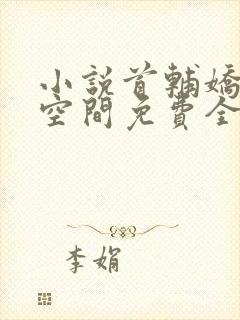 小說首輔嬌
空間免費全
李娟